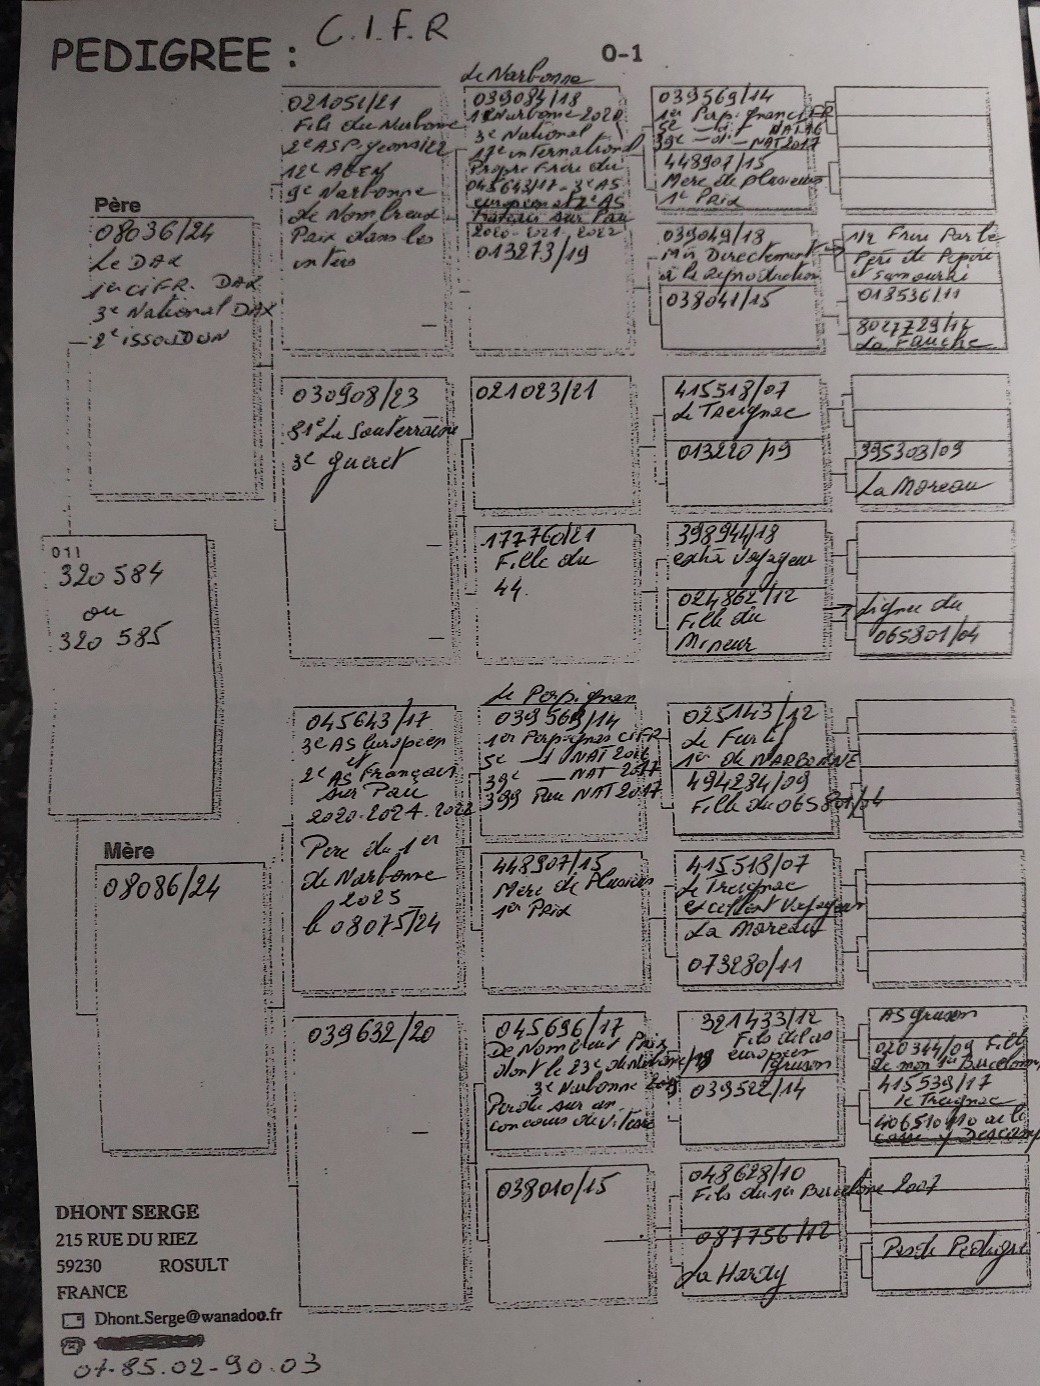 PEDIGREE : C.I.F.R
0-1
Père
08036/24
Le DAX
1er CIFR DAX
3e National DAX
2e ISSOUDUN
011
320 584
ou
320 585
Mère
08086/24
021051/21
Fils du Narbonne
12e AGEN
9e Narbonne
de Nombreux
Prix dans les
inters
030908/23
81e La Souterraine
3e gueret
045643/17
3e AS Européen
et
2e AS Français
sur Pau
Pere du 1er
de Narbonne
2025
le 08075/24
039632/20
Le Narbonne
039084/18
1er Narbonne 2020
3e National
17e international
Propre Frère du
045643/17 - 3e AS
européen et 2e AS
Français sur Pau
2020-2021-2022
013273/19
021023/21
177760/21
Fille du
44.
Le Perpignan
039569/14
1er Perpignan CIFR
5e NAT 2016
39e NAT 2017
399 Pau NAT 2017
448907/15
Mère de Plusieurs
1er Prix
045696/17
De Nombreux Prix
3e Narbonne 2019
Perdu sur un
concours de vitesse
038010/15
039569/14
1er Perpignan CIFR
5e NAT 16
39e NAT 2017
448907/15
Mère de plusieurs
1e Prix
039049/18
Mis Directement
à la Reproduction
038041/15
415518/07
Le Treignac
013220/19
398944/18
extra voyageur
024862/12
Fille du
Mineur
025143/12
Le Furtif
1er de NARBONNE
494284/09
Fille du 065801/04
415518/07
Le Treignac
excellent voyageur
La Moreau
073280/11
321433/12
Fils de l'as
européen
gruson
039522/14
048628/10
Fils du 1er Barcelone 2007
087756/12
La Hardy
1/2 Frère Par le
Père de Pépère
et Samouraï
013536/11
8027729/12
La Fauche
395303/09
La Moreau
Lignée du
065801/04
AS gruson
020344/09 Fille
de mon 1er Barcelone
415539/17
le Treignac
DHONT SERGE
215 RUE DU RIEZ
59230 ROSULT
FRANCE
Dhont.Serge@wanadoo.fr
07-85.02-90.03